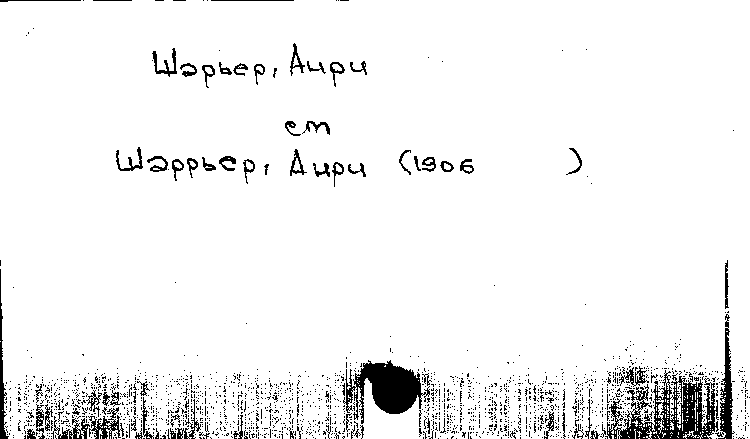 Шарьер, Анри
см
Шаррьер, Анри (1906 )